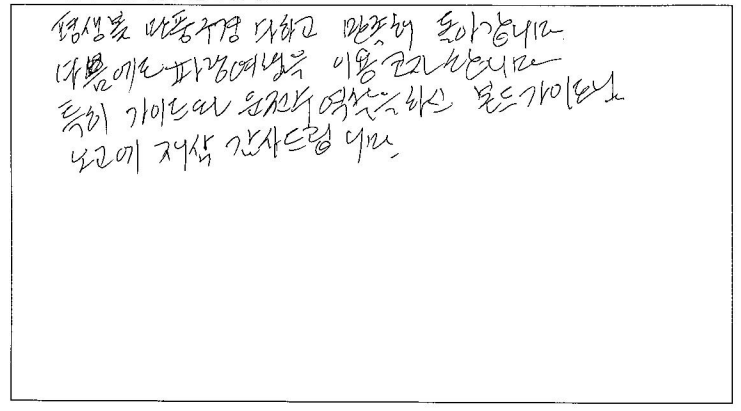 평생볼 단풍구경 다하고 만족해 돌아갑니다.
다음에도 파랑여행을 이용코자 합니다
특히 가이드와 운전수 역할을 하신 본드가이드님
노고에 재삼 감사드립니다.